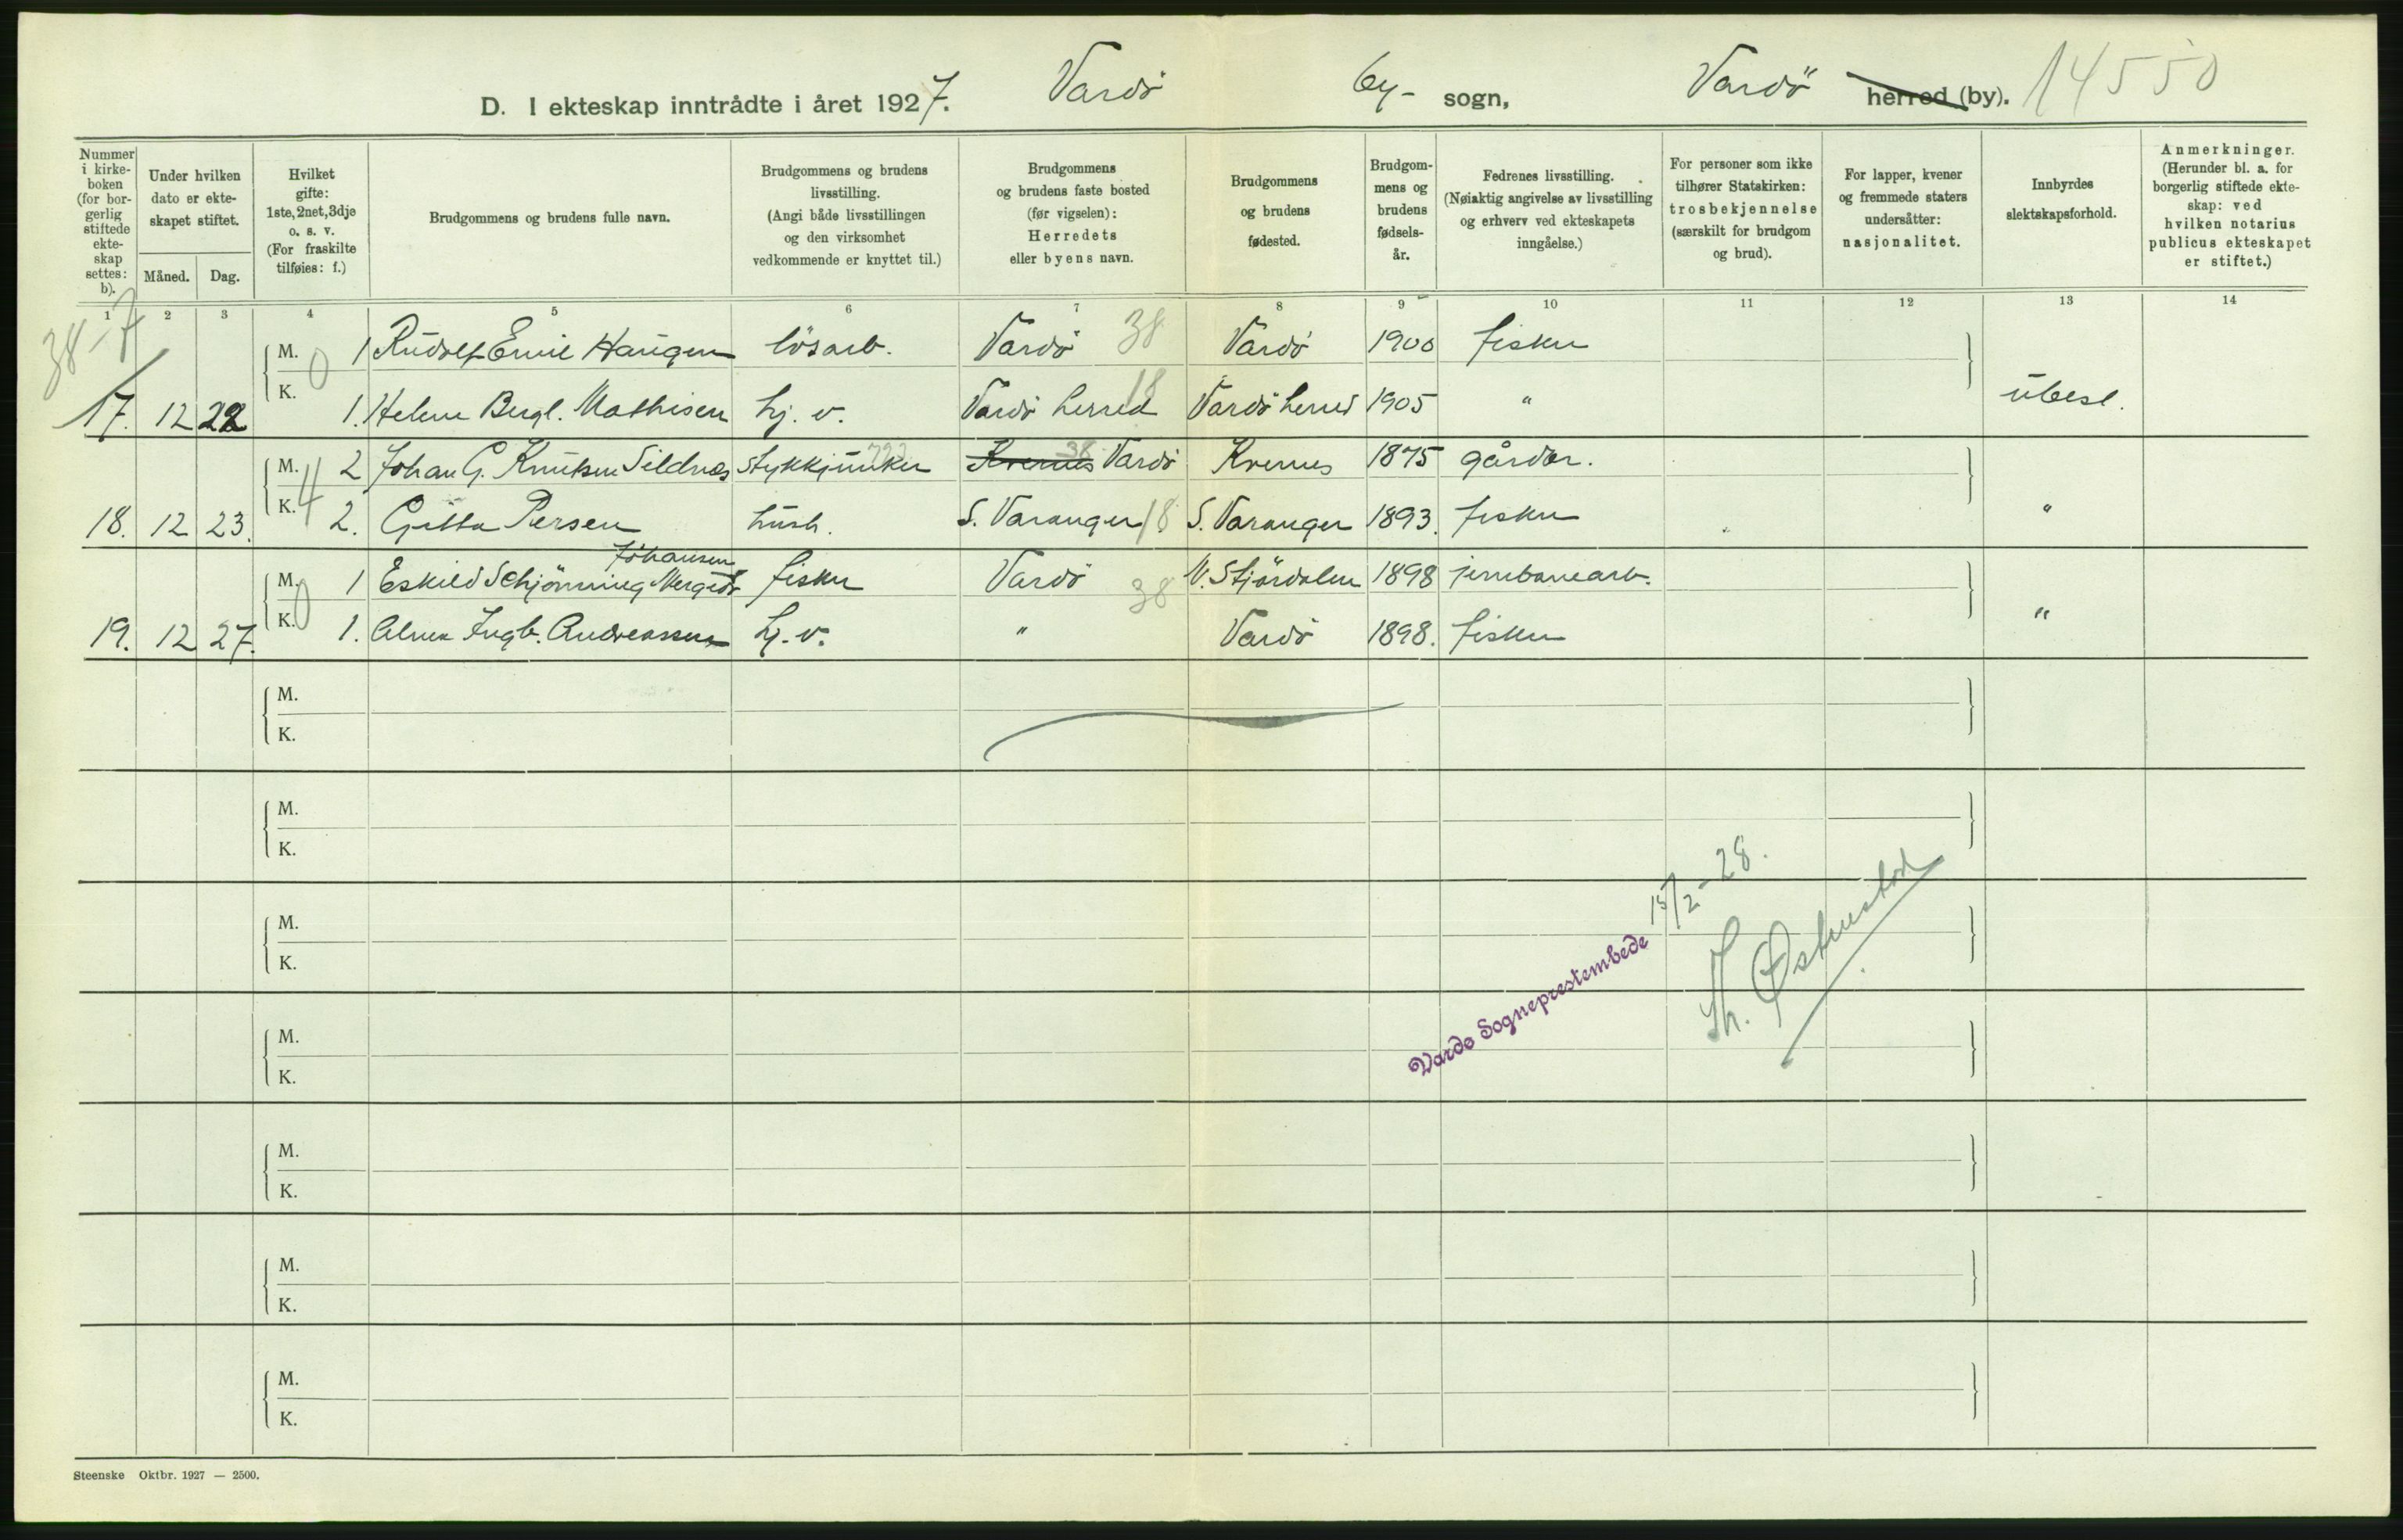 D. I ekteskap inntrådte i året 1927. Vardö by- sogn, Vardö herred (by). 14550
Nummer i kirkeboken (for borgerlig stiftede ekteskap settes: b).
Under hvilken dato er ekteskapet stiftet.
Måned. Dag.
Hvilket gifte: 1ste, 2net, 3dje o. s. v. (For fraskilte tilføies: f.)
Brudgommens og brudens fulle navn.
Brudgommens og brudens livsstilling. (Angi både livsstillingen og den virksomhet vedkommende er knyttet til.)
Brudgommens og brudens faste bosted (før vigselen): Herredets eller byens navn.
Brudgommens og brudens fødested.
Brudgommens og brudens fødselsår.
Fedrenes livsstilling. (Nøiaktig angivelse av livsstilling og erhverv ved ekteskapets inngåelse.)
For personer som ikke tilhører Statskirken: trosbekjennelse (særskilt for brudgom og brud).
For lapper, kvener og fremmede staters undersåtter: nasjonalitet.
Innbyrdes slektskapsforhold.
Anmerkninger. (Herunder bl. a. for borgerlig stiftede ekteskap: ved hvilken notarius publicus ekteskapet er stiftet.)
1 2 3 4 5 6 7 8 9 10 11 12 13 14
38-7
M. 0 1 Rudolf Emil Haugen lösarb. Vardö 38 Vardö 1900 fisker
17. 12 22 K. 1. Helene Bergl. Mathisen hj. v. Vardö herred 18 Vardö herred 1905 " ubesl.
M. 4 2 Johan G. Knutsen Sildnes stykkjunker Kvernes 38 Vardö Kvernes 1875 gårdbr.
18. 12 23. K. 2. Gitta Persen hush. S. Varanger 18 S. Varanger 1893. fisker "
Johansen
M. 0 1 Eskild Schjönning fisker Vardö 38 N. Stjördalen 1898 jernbanearb.
19. 12 27. K. 1. Alma Ingb. Andreassen hj. v. " Vardö 1898. fisker "
M.
K.
M.
K.
M.
K.
M.
K.
M.
K.
M.
K.
M.
K.
Vardø Sogneprestembede 15/2-28.
Th.
Steenske Oktbr. 1927 — 2500.